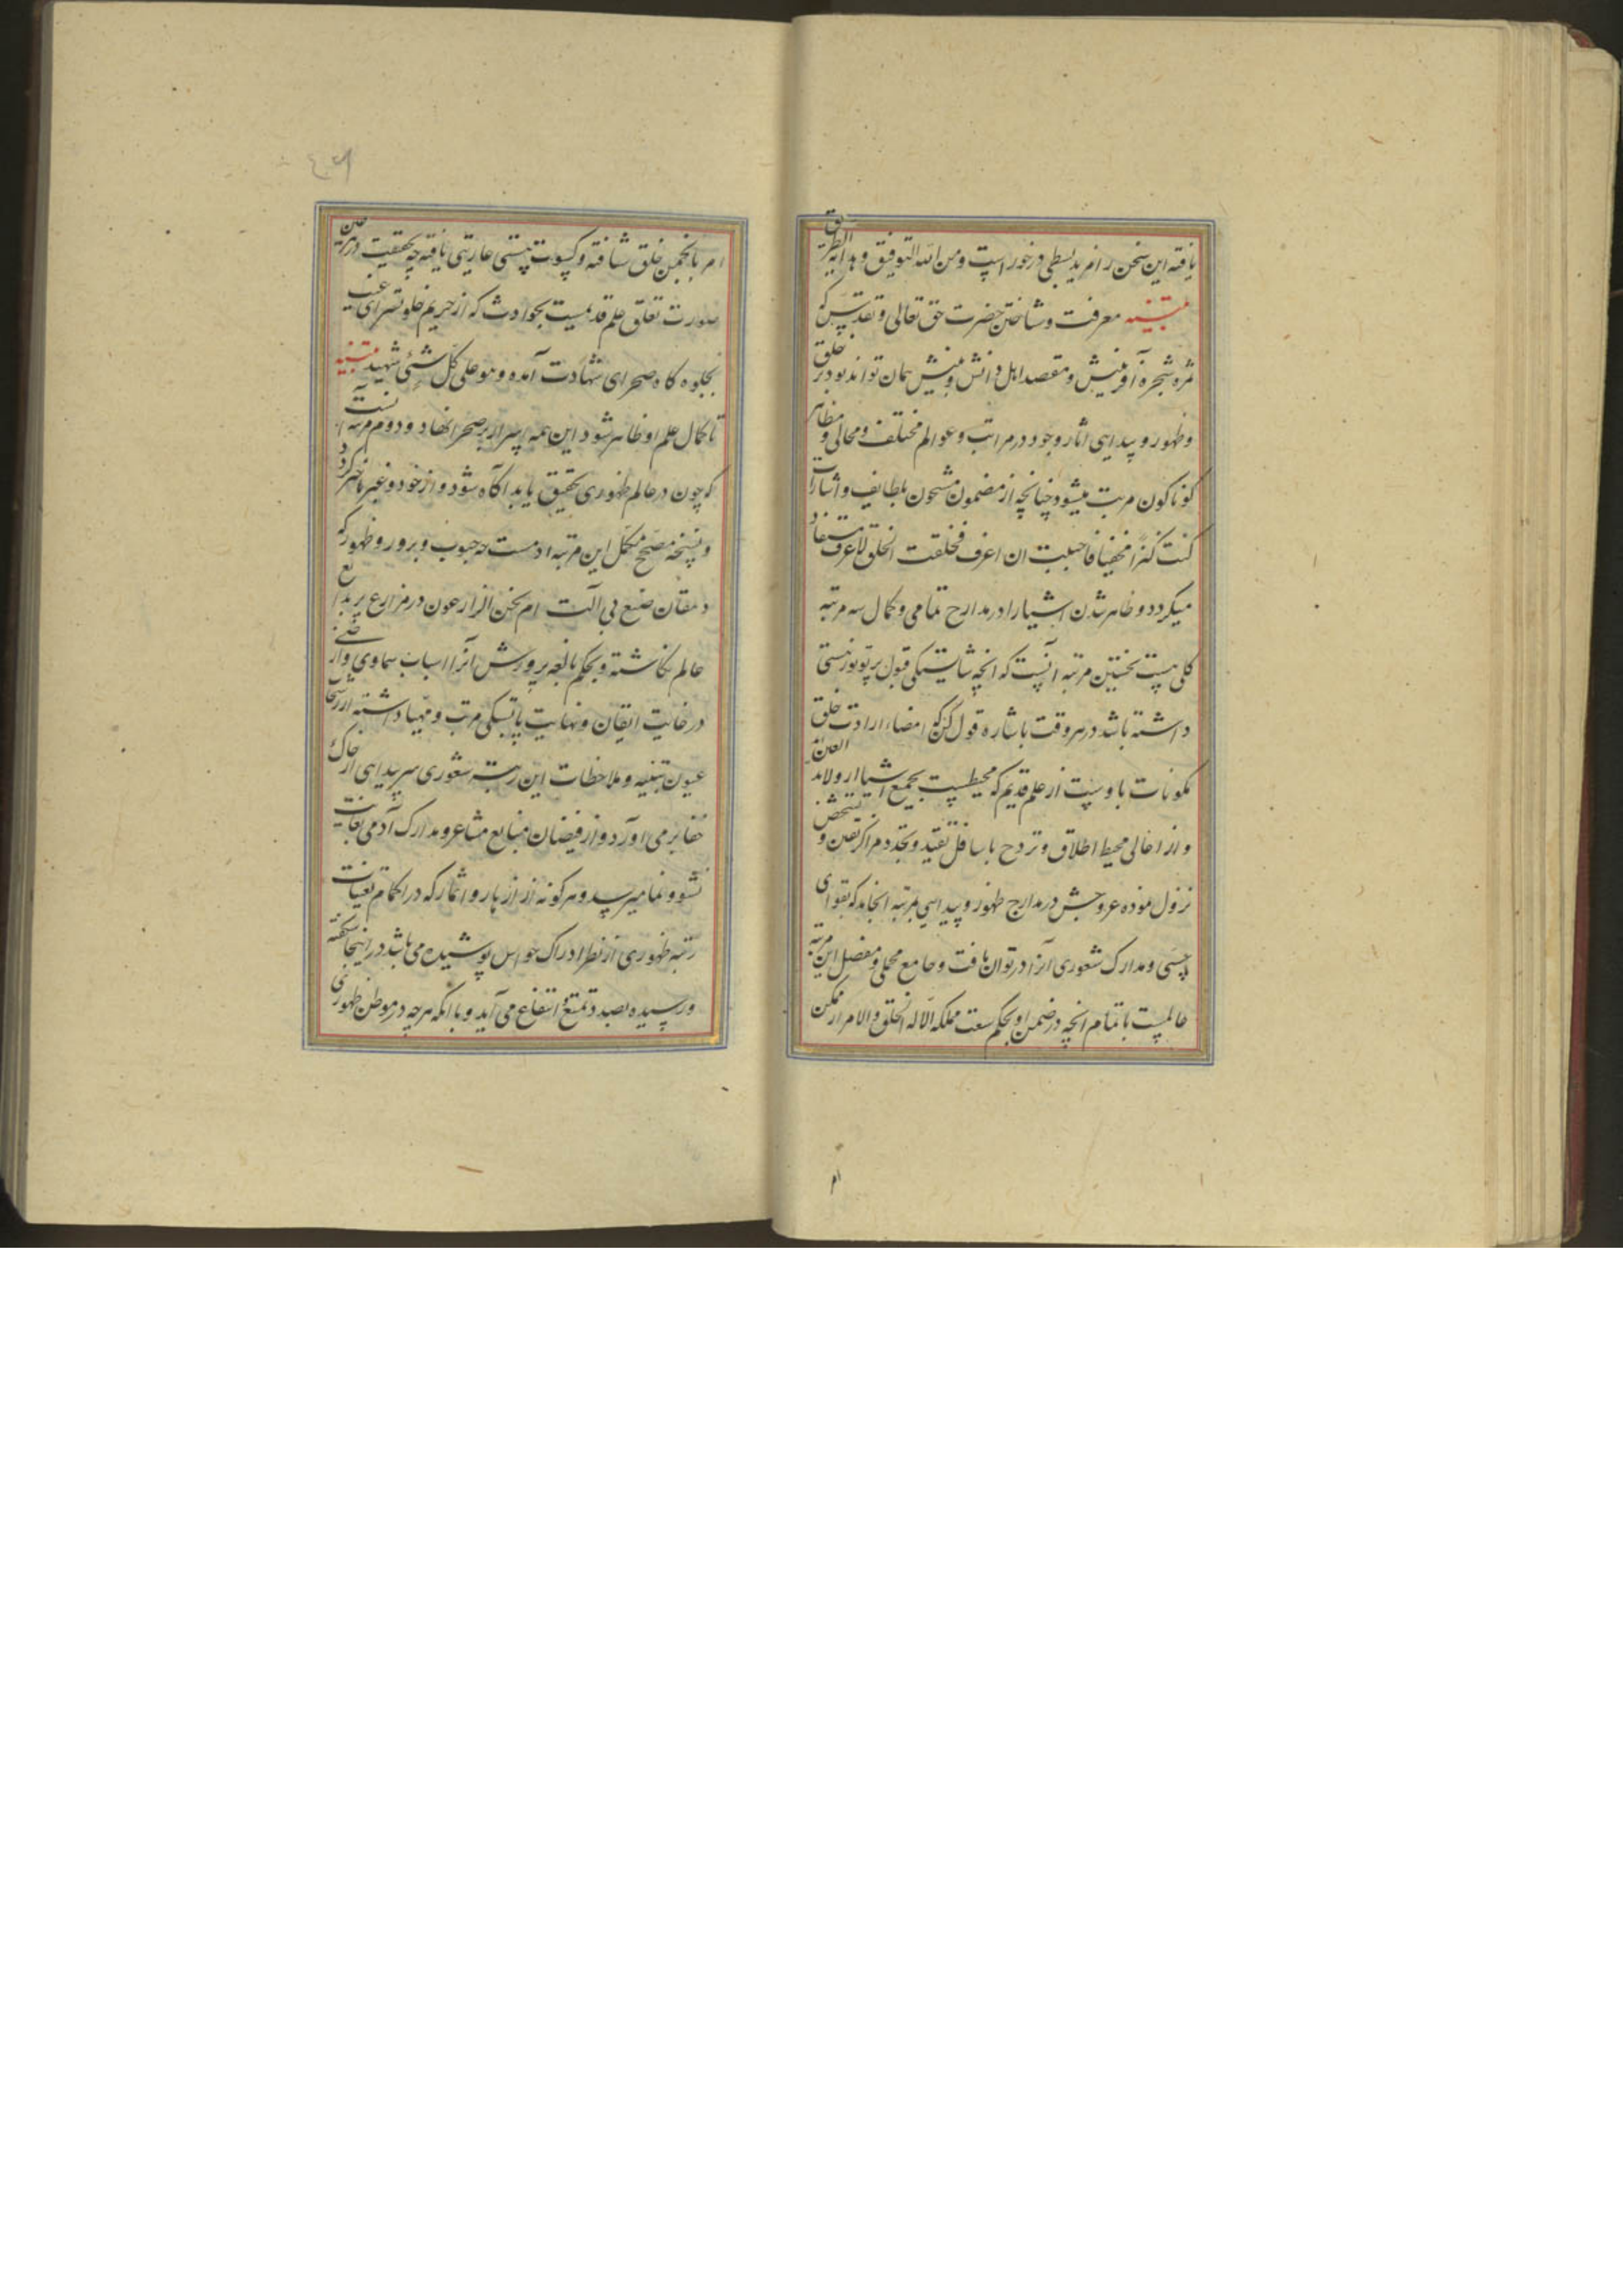 یافته این سخن را مزید بسطی در خور است ومن الله التوفیق و هدایة الطریق
تنبیه معرفت وشناختن حضرت حق تعالی و تقدس که
ثمره شجره آفرینش و مقصد اهل دانش و بینش همان تواند بود بر خلق
وظهور و پیدایی اثار وجود در مراتب وعوالم مختلف و مجالی و مظاهر
کوناکون مرتب میشود چنانچه از مضمون مشحون بلطایف و اشارات
کنت کنزا مخفیا فاحببت ان اعرف فخلقت الخلق لاعرف مستفاد
میکردد و ظاهر شدن اشیا را در مدارج تمامی و کمال سه مرتبه
کلی هست نخستین مرتبه آنست که انچه شایستکی قبول پرتو نور هستی
داشته باشد در هر وقت باشاره قول کن که امضاء ارادت خلق
مکونات باوست از علم قدیم که محیطست بجمیع اشیا ازلا و ابدا
و از اعالی محیط اطلاق و تروح باسافل تقید و تجدد مراکز تعین و تشخص
نزول نموده عروجش در مدارج ظهور و پیدایی بمرتبه انجامد که بقوای
حسی و مدارک شعوری آنرا در توان یافت و جامع مجملی و مفصل این مرتبه
عالمست با تمام انچه در ضمن او بحکم سعت مملکه الا له الخلق والامر از ممکن
ام
امر بانجمن خلق شتافته و کسوت هستی عاریتی یافته چه بحقیقت در هر حین
صورت تعلق علم قدیمست بحوادث که از حریم خلوتسرای غیب
بجلوه کاه صحرای شهادت آمده وهو علی کل شیء شهید تنبیه
تا کمال علم او ظاهر شود این همه اسرار بر صحرا نهاد و دوم مرتبه آنست
که چون در عالم ظهوری تحقیق یابد اکاه شود و از خود و غیر باخبر کردد
و نسخه مصحح مکمل این مرتبه ادمست چه حبوب و بروز و ظهور که
دهقان صنع بی الت ام نحن الزارعون در مزارع بدایع
عالم کاشته و بحکم بالغه پرورش آنرا اسباب سماوی و ارضی
در غایت اتقان و نهایت بایستکی مرتب و مهیا داشته از رشحات
عیون تنبیه و ملاحظات این رتبه شعوری سر پیدایی از خاک
خفا برمی آورد و از فیضان منابع مشاعر و مدارک آدمی بغایت
نشو و نما میرسد و هر کونه از ازهار و اثمار که در اکمام تعینات
رتبه ظهوری از نظر ادراک حواس پوشیده می باشد در اینجا شکفته
و رسیده بصدد تمتع و انتفاع می آید و با انکه هرچه در موطن ظهوری